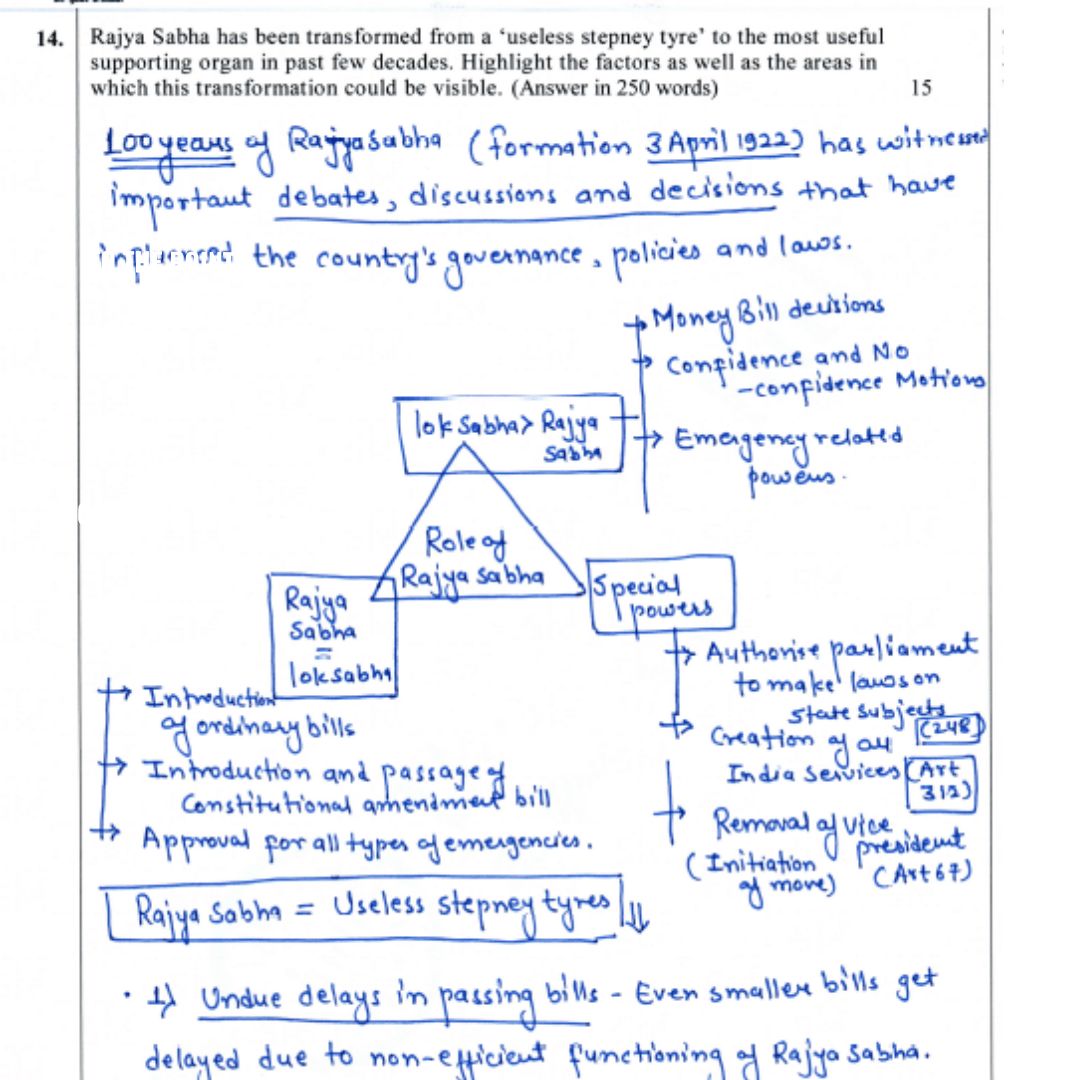 14. Rajya Sabha has been transformed from a ‘useless stepney tyre’ to the most useful
supporting organ in past few decades. Highlight the factors as well as the areas in
which this transformation could be visible. (Answer in 250 words) 15
100 years of Rajyasabha (formation 3 April 1922) has witnessed
important debates, discussions and decisions that have
the country's governance, policies and laws.
→ Money Bill decisions
→ Confidence and No
-confidence Motions
→ Emergency related
powers.
lok Sabha > Rajya
Sabha
Role of
Rajya sabha
Rajya
Sabha
=
loksabha
→ Introduction
of ordinary bills
→ Introduction and passage of
Constitutional amendment bill
→ Approval for all types of emergencies.
Special
powers
→ Authorise parliament
to make laws on
state subjects
(248)
→ Creation of all
India services (Art
312)
→ Removal of vice
president
(Initiation
of move) (Art 67)
Rajya Sabha = Useless stepney tyres ⇓
• 1) Undue delays in passing bills - Even smaller bills get
delayed due to non-efficient functioning of Rajya Sabha.